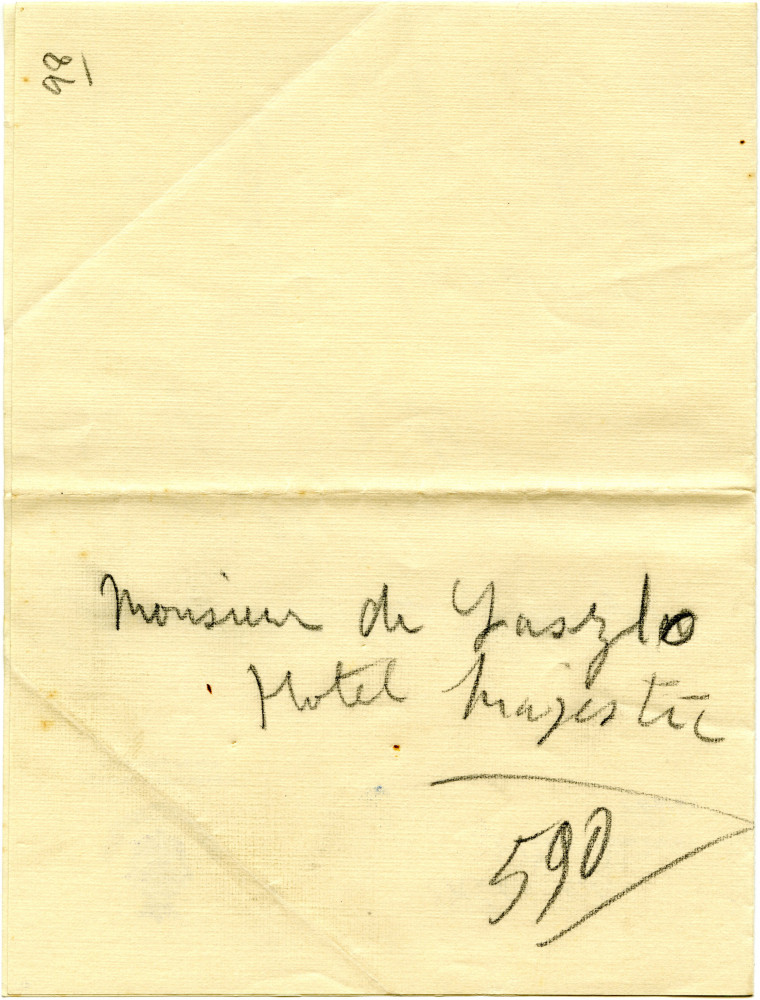 98
Monsieur de Laszlo
Hotel Majestic
590